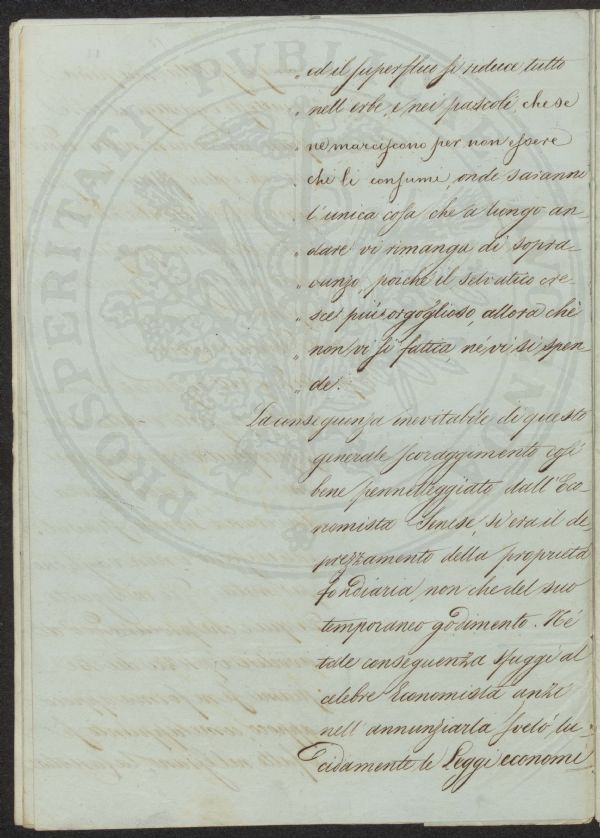 „ ed il superfluo si riduce tutto
„ nell'erbe, e nei pascoli, che se
„ ne marciscono per non essere
„ chi li consumi, onde saranno
„ l'unica cosa che a lungo an-
„ dare vi rimanga di sopra-
„ vanzo, poichè il selvatico cre-
„ sce più orgoglioso, allora chè
„ non vi si fatica, né vi si spen-
„ de.
La conseguenza inevitabile di questo
generale scoraggimento così
bene pennelleggiato dall'Eco-
nomista Senese, si era il de-
prezzamento della proprietà
fondiaria, non che del suo
temporaneo godimento. Né
tale conseguenza sfuggì al
celebre Economista anzi
nell'annunziarla svelò lu-
cidamente le Leggi economi
PROSPERITATI PUBLICAE